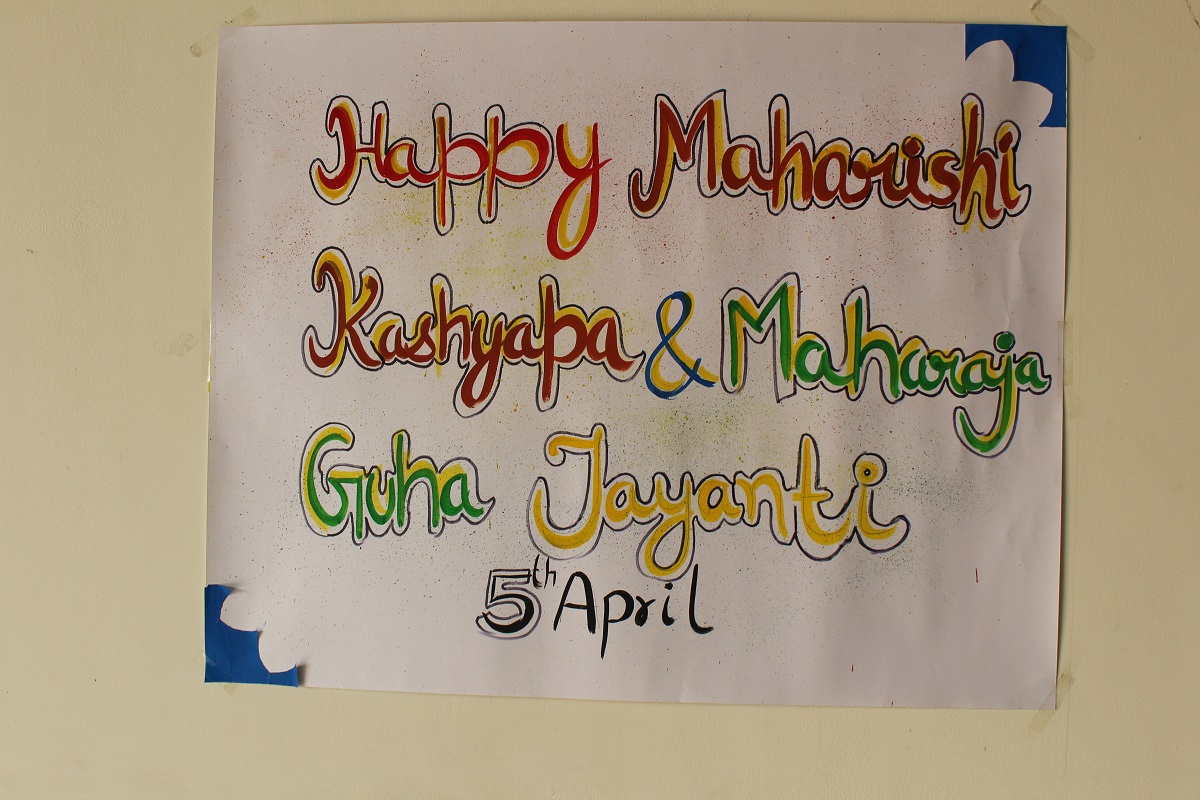 Happy Maharishi
Kashyapa & Maharaja
Guha Jayanti
5th April